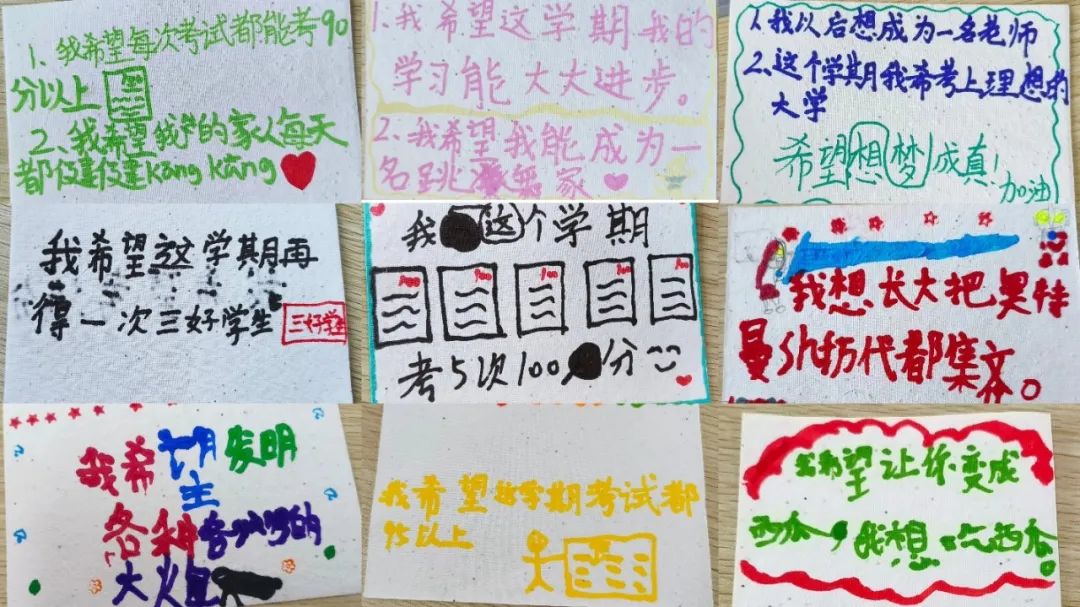 1、我希望每次考试都能考90
分以上
2、我希望我的家人每天
都健健kāng kāng
1、我希望这学期我的
学习能大大进步。
2、我希望我能成为一
名跳舞家
1、我以后想成为一名老师
2、这个学期我希考上理想的
大学
希望想梦成真!
加油
我希望这学期再
得一次三好学生
三好学生
我这个学期
100 100 100 100 100
考5次100分
我想长大把奥特
曼sh历代都集齐。
我希望发明
各种各
大火
我希望这学期考试都
95以上
我希望让你变成
西瓜,我想吃西瓜